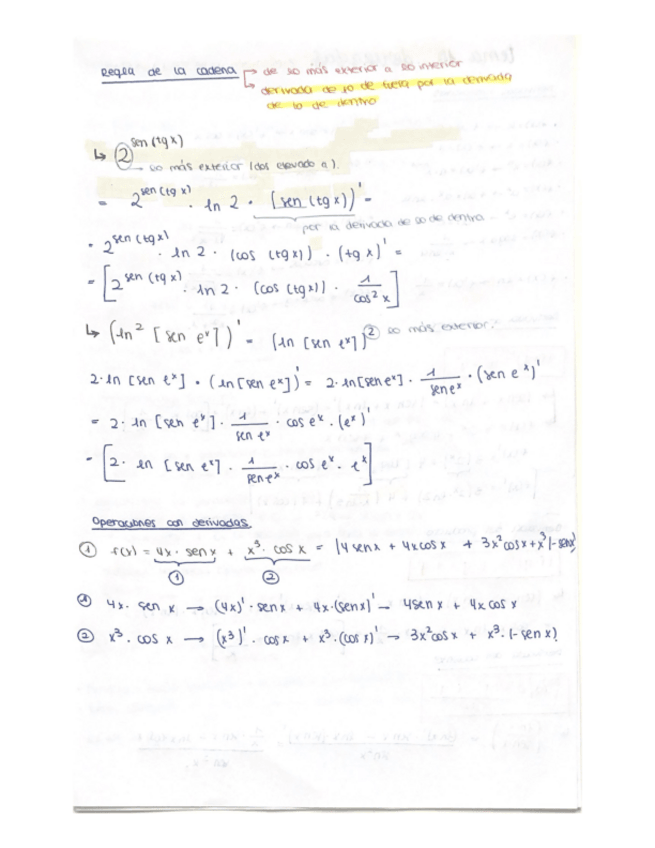 Regla de la cadena → de lo más exterior a lo interior
↳ derivada de lo de fuera por la derivada
de lo de dentro
↳ 2^sen(tg x)
→ lo más exterior (dos elevado a).
= 2^sen(tg x) · ln 2 · [sen (tg x)]' =
por la derivada de lo de dentro
= 2^sen(tg x) · ln 2 · (cos (tg x)) · (tg x)' =
= [2^sen(tg x) · ln 2 · (cos (tg x)) · 1/cos² x]
↳ (ln² [sen eˣ])' = (ln [sen eˣ])² lo más exterior.
2 · ln [sen eˣ] · (ln [sen eˣ])' = 2 · ln [sen eˣ] · 1/sen eˣ · (sen eˣ)'
= 2 · ln [sen eˣ] · 1/sen eˣ · cos eˣ · (eˣ)'
= [2 · ln [sen eˣ] · 1/sen eˣ · cos eˣ · eˣ]
Operaciones con derivadas.
① f(x) = 4x · sen x + x³ · cos x = |4 sen x + 4x cos x + 3x² cos x + x³ (-sen x)
① ②
① 4x · sen x → (4x)' · sen x + 4x · (sen x)' → 4 sen x + 4x cos x
② x³ · cos x → (x³)' · cos x + x³ · (cos x)' → 3x² cos x + x³ · (-sen x)